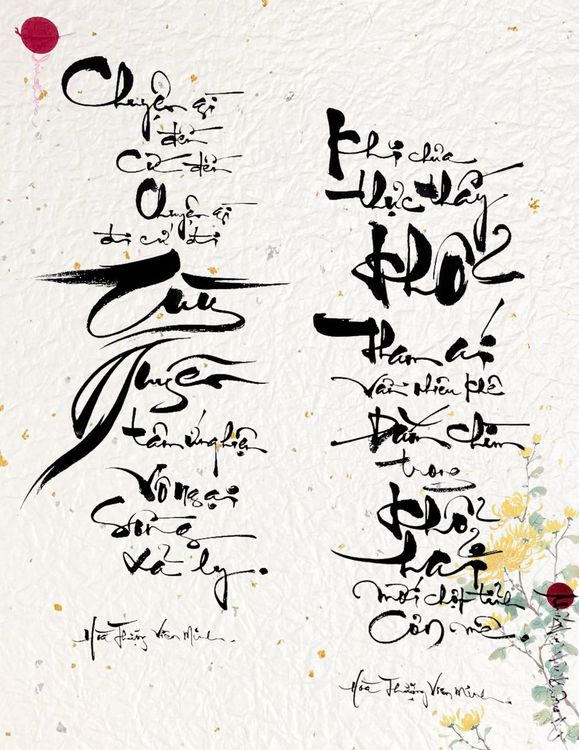 Chuyện gì
đến
cứ đến
Chuyện gì
đi cứ đi
Tùy
Duyên
tâm ứng hiện
Vô ngại
Sống
xả ly.
Hòa Thượng Viên Minh.
Khi chưa
thực thấy
khổ
Tham ái
vẫn nhiêu khê
Đắm chìm
trong
khổ
hải
mới chợt tỉnh
Cơn mê.
Hòa Thượng Viên Minh.